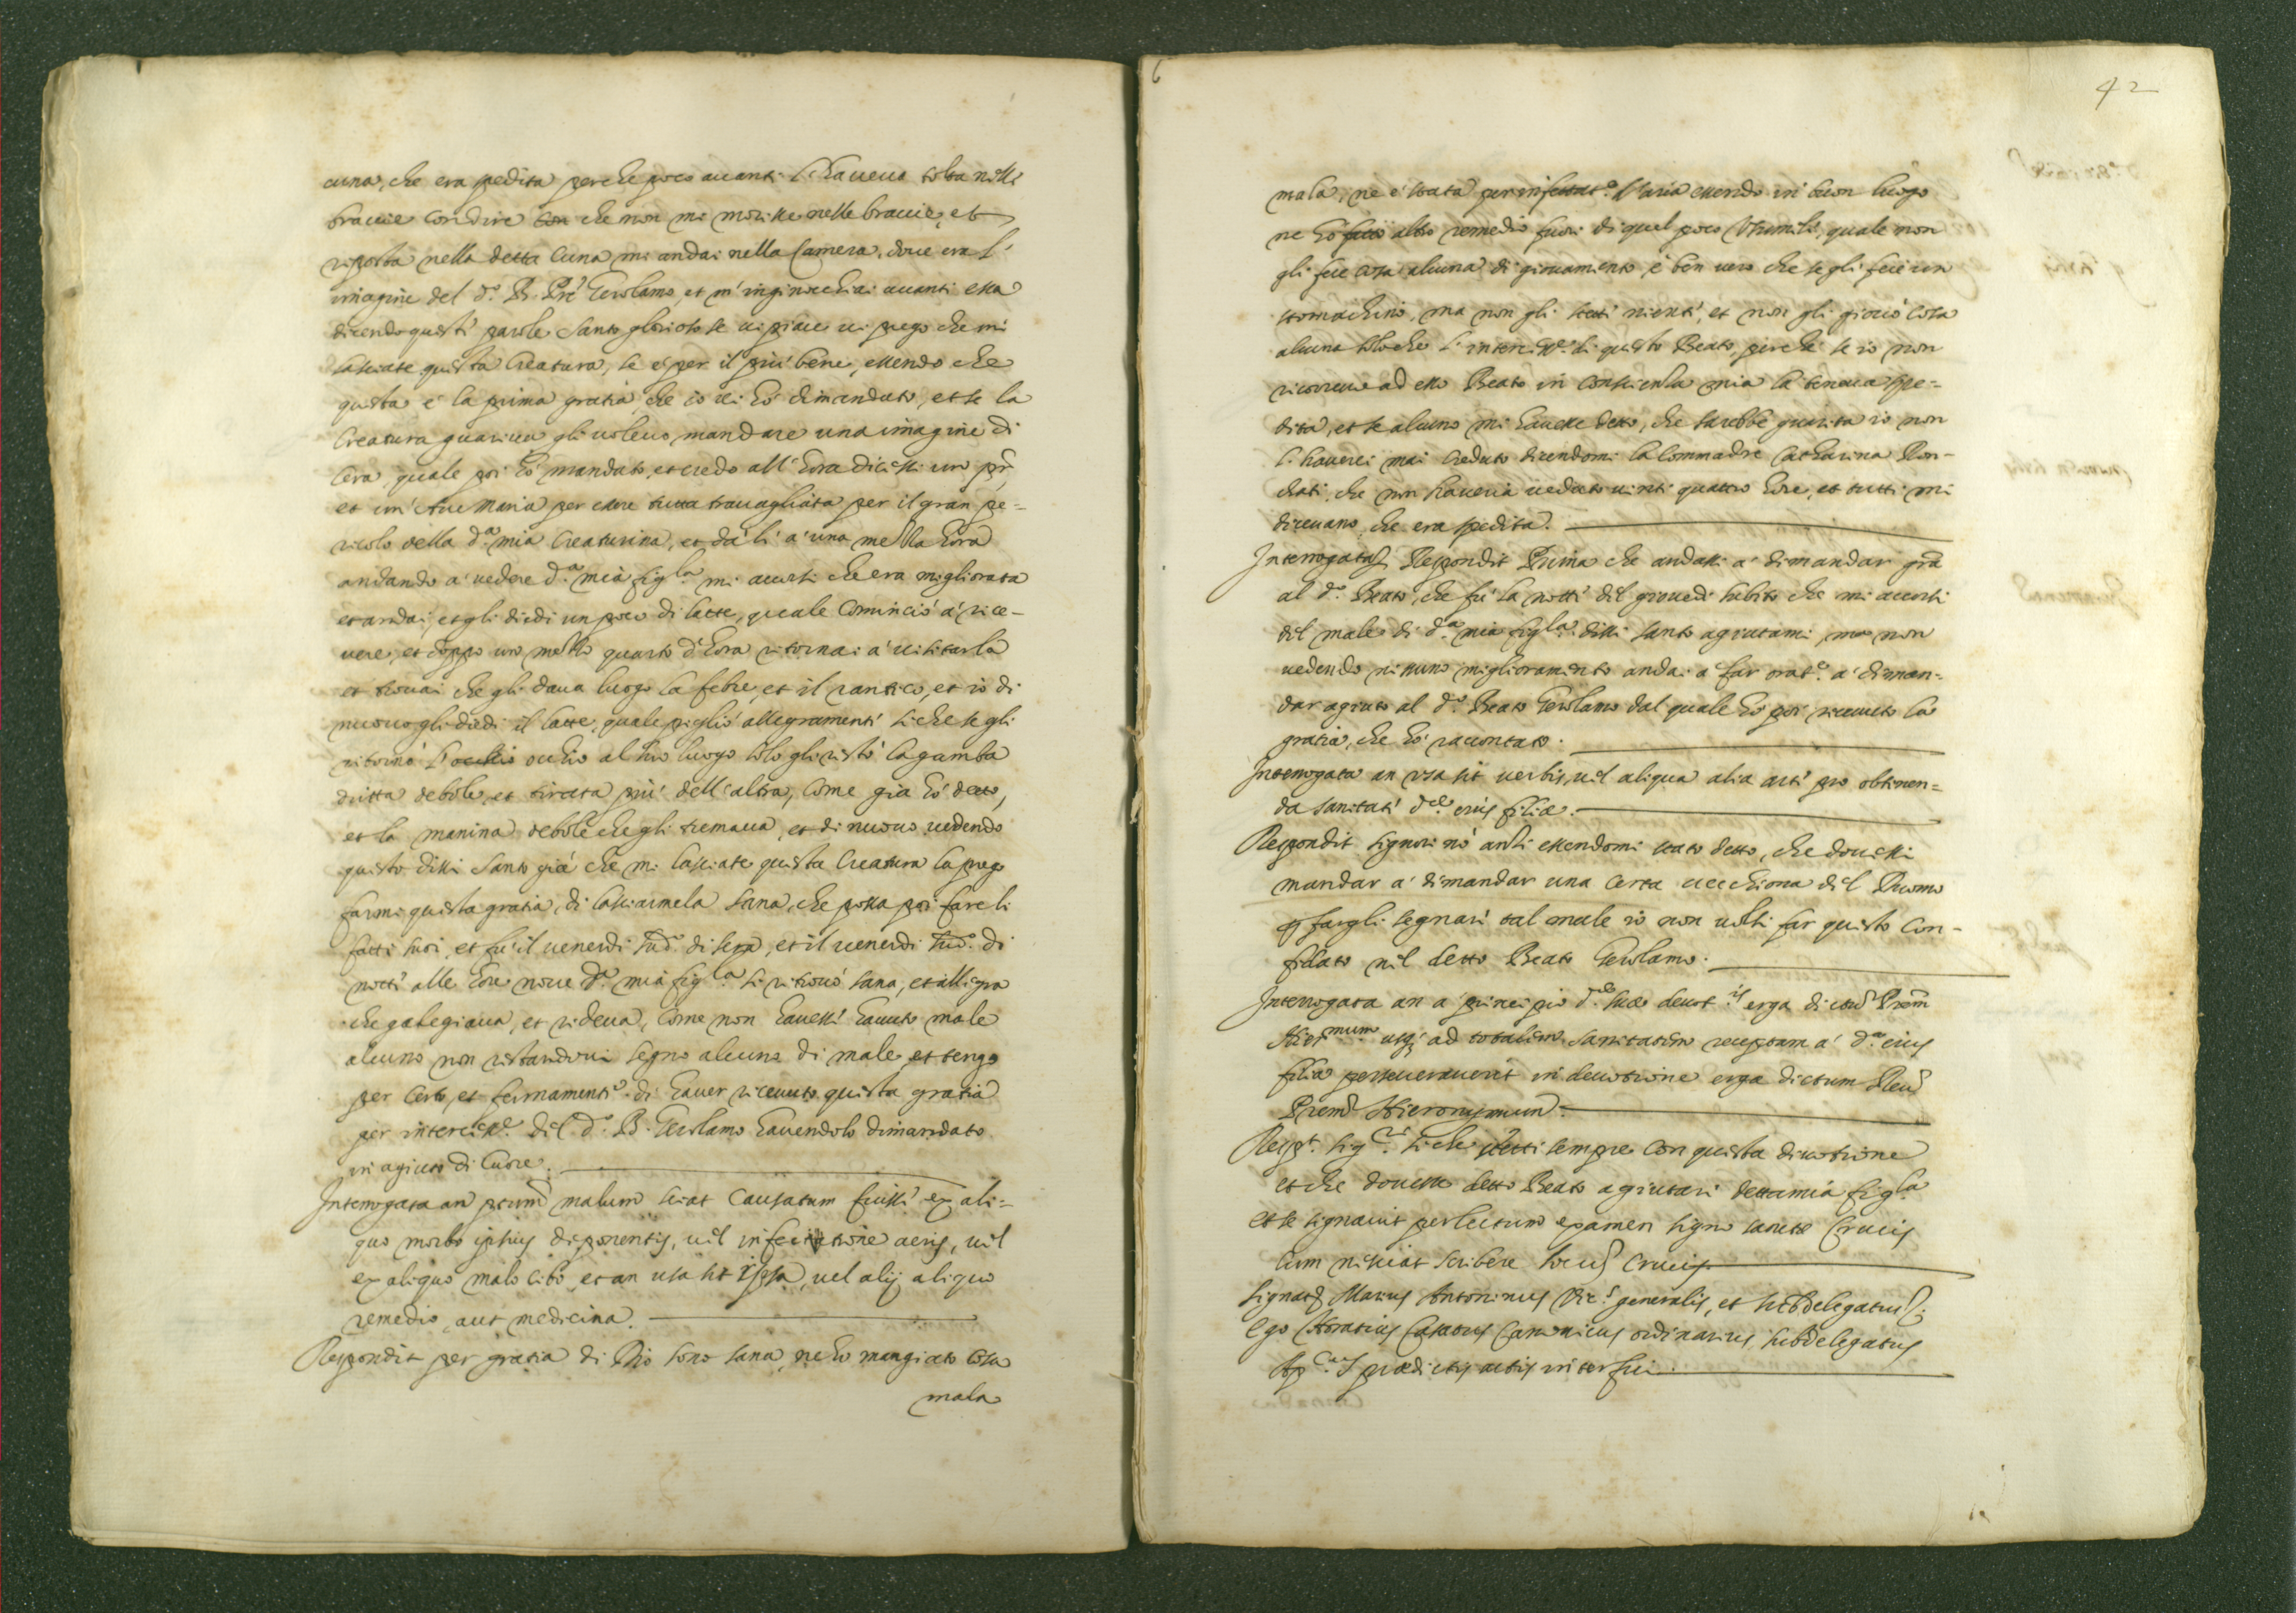 cuna, che era spedita perche poco auanti l'haueua tolta nelli
braccie con dire con che non mi morisse nelle braccie, et
riposta nella detta Cuna mi andai nella Camera, doue era l'
imagine del d.º B. Prẽ Gerolamo, et m'inginocchiai auanti essa
dicendo questi parole Santo glorioso se ui piace ui prego che mi
lasciate questa Creatura, se è per il più bene, essendo che
questa è la prima gratia che io ui hò dimandato, et se la
Creatura guariua gli uoleuo mandare una imagine di
Cera, quale poi hò mandato, et credo all'hora dicessi un pr̃,
et un'Aue Maria per essere tutta trauagliata per il gran pe=
ricolo della d.ª mia Creaturina, et da lì a una mezza hora
andando a uedere d.ª mia figla mi accorsi che era migliorata
et andai, et gli diedi un poco di latte, quale Cominciò à rice-
uere, et doppo un mezzo quarto d'hora ritornai a uisitarla
et trouai che gli daua luogo la febre, et il rantico, et io di
nuouo gli diedi il latte, quale pigliò allegramenti siche se gli
ritornò l'occhio occhio al suo luogo solo gli restò la gamba
dritta debole, et tirata più dell'altra, Come già hò detto,
et la manina debole che gli tremaua, et di nuouo uedendo
questo dissi Santo già che mi lasciate questa Creatura la prego
farmi questa gratia, di lasciarmela sana, che possa poi fare li
fatti suoi, et fu il uenerdi sud.º di sera, et il uenerdi sud.º di
notti alle hore noue d.ª mia figla si ritrouò sana, et allegra
che galegiaua, et rideua, Come non hauessi hauuto male
alcuno non restandoui segno alcuno di male, et tengo
per certo, et fermamenti di hauer riceuuto questa gratia
per interces.ne del d.º B. Gerolamo hauendolo dimandato
in agiuto di Cuore.
Interrogata an pctum̃ malum sciat Causatum fuissi ex ali=
quo morbo ipsius deponentis, uel infectione aeris, uel
ex aliquo malo cibo, et an usa sit ipsa, uel alij aliquo
remedio, aut medicina.
Respondit per gratia di Dio sono sana, ne hò mangiato Cosa
mala
42
mala, ne è stata per infettat.e l'aria essendo in buon luogo
ne hò fatto altro remedio fuori di quel poco, quale non
gli fece cosa alcuna di giouamento è ben uero che se gli fece un
stomachino, ma non gli stetti nienti, et non gli giouò Cosa
alcuna solo che l'interces.ne di questo Beato, perche se io non
ricorreuo ad esso Beato in conscienza mia la teneua spe=
dita, et se alcuno mi hauesse detto, che sarebbe guarita io non
l'hauerei mai creduto dicendomi la Commadre Catharina Ron-
chati, che non haueria ueduto uinti quattro hore, et tutti mi
diceuano che era spedita.
Interrogata Respondit Prima che andassi a' dimandar gr̃a
al d.º Beato, che fù la notti del giouedi subito che mi accorsi
del male di d.ª mia figla dissi Santo agiutami, ma non
uedendo nissuno miglioramento andai a far orat.e a' diman=
dar agiuto al d.º Beato Gerolamo dal quale hò poi riceuuto la
gratia, che hò raccontato.
Interrogata an usa sit uerbis, uel aliqua alia arti pro obtinen=
da sanitati d.ae eius filiæ.
Respondit Signori nò anzi essendomi stato detto, che douessi
mandar a' dimandar una Certa uecchiona del Duomo
p fargli segnari tal male io non uolsi far questo Con-
fidato nel detto Beato Gerolamo.
Interrogata an a principio d.ae suæ deuot.is erga dictũ Prem̃
Hiermum usq; ad totalem sanitatem receptam a' d.ª eius
filia perseuerauerit in deuotione erga dictum Reu.
Prem̃ Hieronymum.
Resp.t Sig.ri siche stetti sempre con questa diuotione
et che douesse detto Beato agiutari detta mia figla
et se signauit perlectum examen signo sanctæ Crucis
Cum nesciat scribere locus Crucis
Signat. Marius Antoninus Vic.s generalis, et subdelegatus.
Ego Horatius Casatus Canonicus ordinarius subdelegatus
Ap.cus prædictis actis interfui.